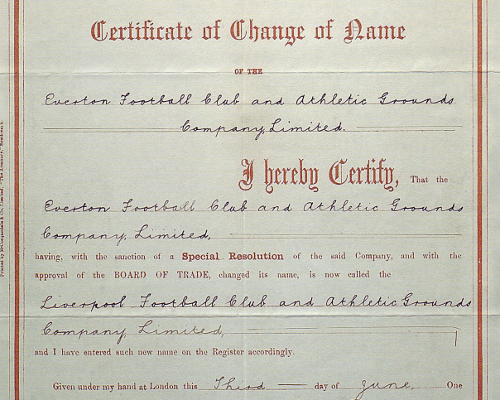 Certificate of Change of Name
OF THE
Everton Football Club and Athletic Grounds
Company, Limited.
I hereby Certify, That the
Everton Football Club and Athletic Grounds
Company, Limited,
having, with the sanction of a Special Resolution of the said Company, and with the
approval of the BOARD OF TRADE, changed its name, is now called the
Liverpool Football Club and Athletic Grounds
Company, Limited,
and I have entered such new name on the Register accordingly.
Given under my hand at London this Third day of June, One